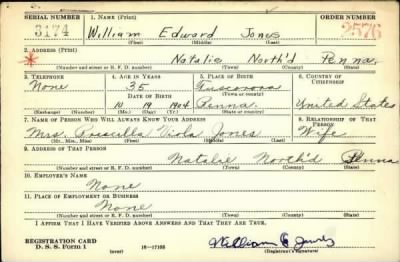 SERIAL NUMBER 1. NAME (Print) ORDER NUMBER
3174 William Edward Jones 2576
(First) (Middle) (Last)
2. ADDRESS (Print)
Natalie North'd Penna.
(Number and street or R. F. D. number) (Town) (County) (State)
3. TELEPHONE 4. AGE IN YEARS 5. PLACE OF BIRTH 6. COUNTRY OF CITIZENSHIP
None 35 Tuscarora
DATE OF BIRTH (Town or county)
10 19 1904 Penna. United States
(Exchange) (Number) (Mo.) (Day) (Yr.) (State or country)
7. NAME OF PERSON WHO WILL ALWAYS KNOW YOUR ADDRESS 8. RELATIONSHIP OF THAT PERSON
Mrs. Priscilla Viola Jones Wife
(Mr., Mrs., Miss) (First) (Middle) (Last)
9. ADDRESS OF THAT PERSON
Natalie North'd Penna
(Number and street or R. F. D. number) (Town) (County) (State)
10. EMPLOYER'S NAME
None
11. PLACE OF EMPLOYMENT OR BUSINESS
None
(Number and street or R. F. D. number) (Town) (County) (State)
I AFFIRM THAT I HAVE VERIFIED ABOVE ANSWERS AND THAT THEY ARE TRUE.
REGISTRATION CARD
D. S. S. Form 1 (over) 16—17105 William E Jones
(Registrant's signature)